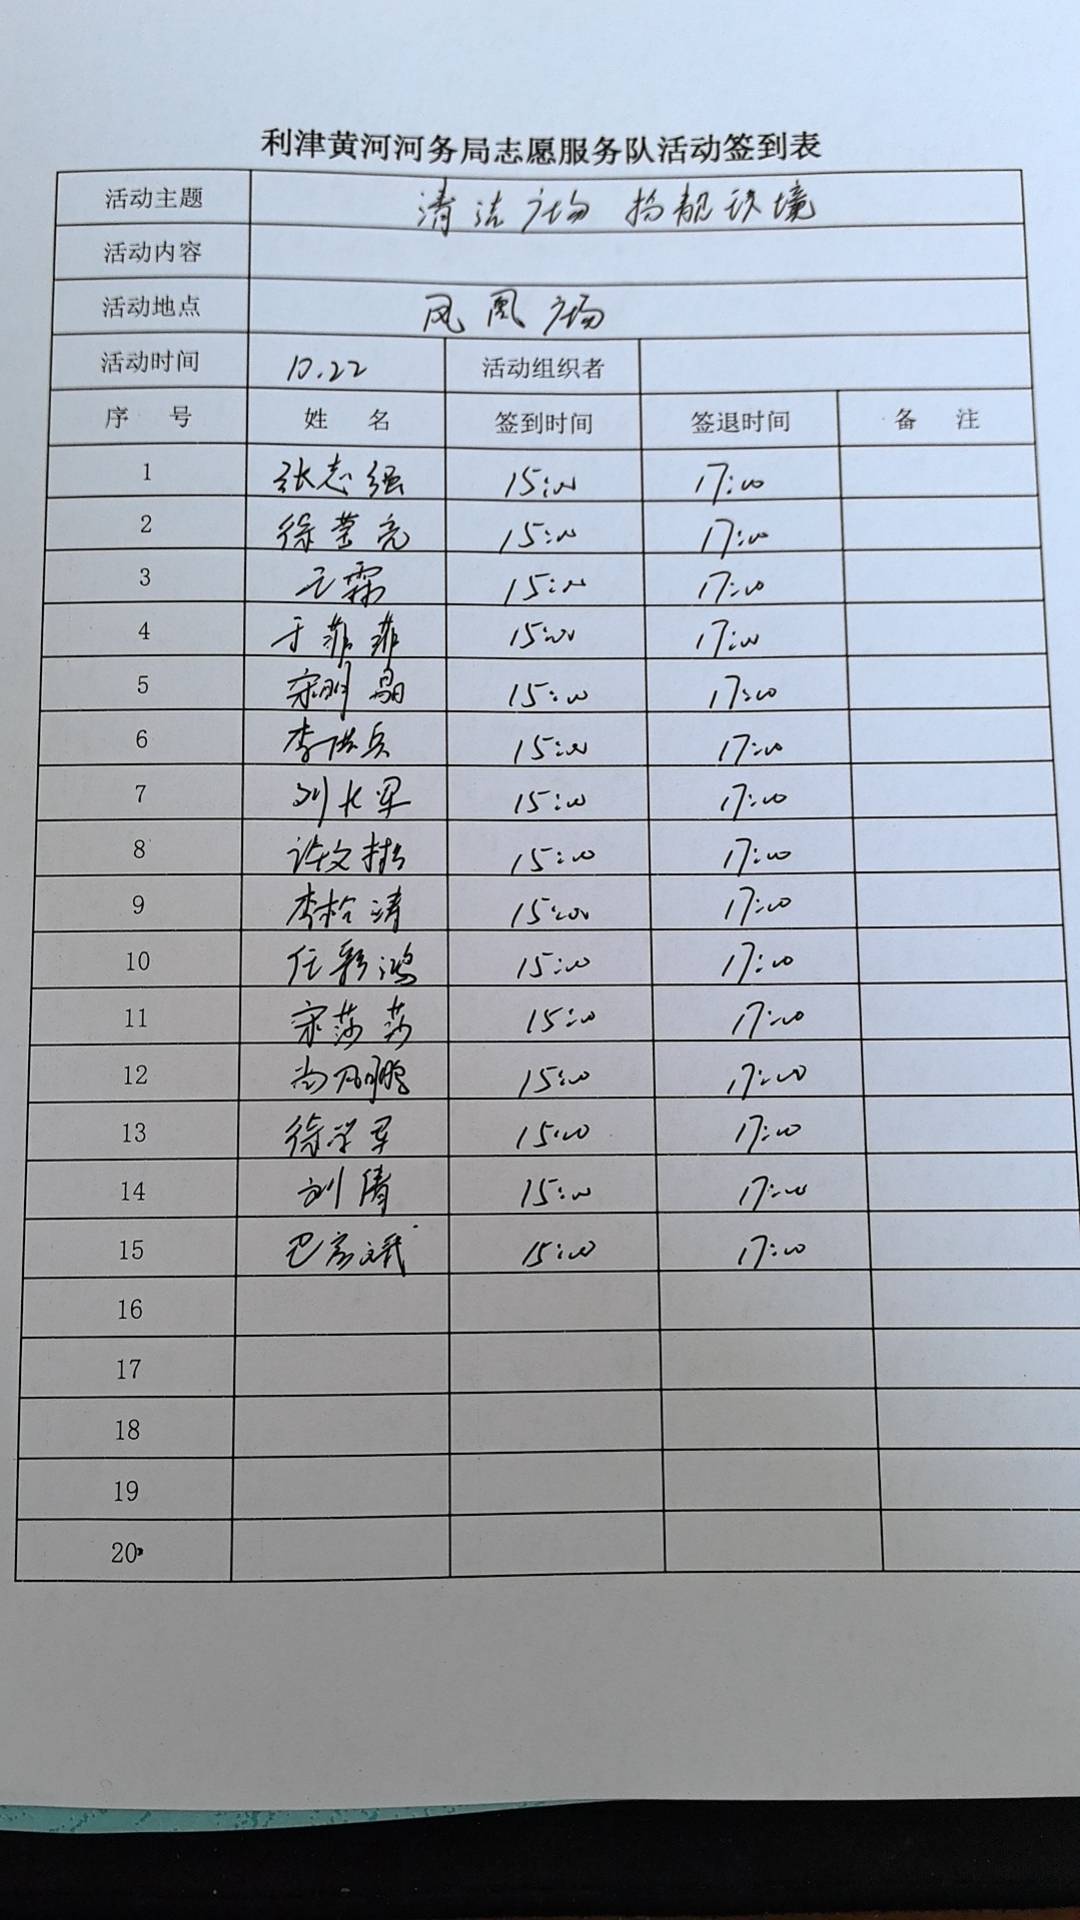 利津黄河河务局志愿服务队活动签到表
活动主题 清洁广场 扮靓环境
活动内容
活动地点 凤凰广场
活动时间 10.22 活动组织者
序 号 姓 名 签到时间 签退时间 备 注
1 张志强 15:00 17:00
2 徐莹亮 15:00 17:00
3 王霖 15:00 17:00
4 于菲菲 15:00 17:00
5 宋明 15:00 17:00
6 李洪兵 15:00 17:00
7 刘长军 15:00 17:00
8 许文 15:00 17:00
9 李松涛 15:00 17:00
10 任彩鸿 15:00 17:00
11 宋莎莎 15:00 17:00
12 尚鹏 15:00 17:00
13 徐学军 15:00 17:00
14 刘倩 15:00 17:00
15 巴彦斌 15:00 17:00
16
17
18
19
20